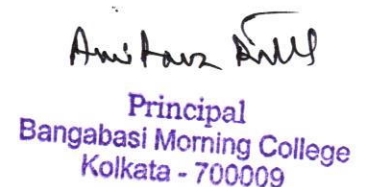 Principal
Bangabasi Morning College
Kolkata - 700009